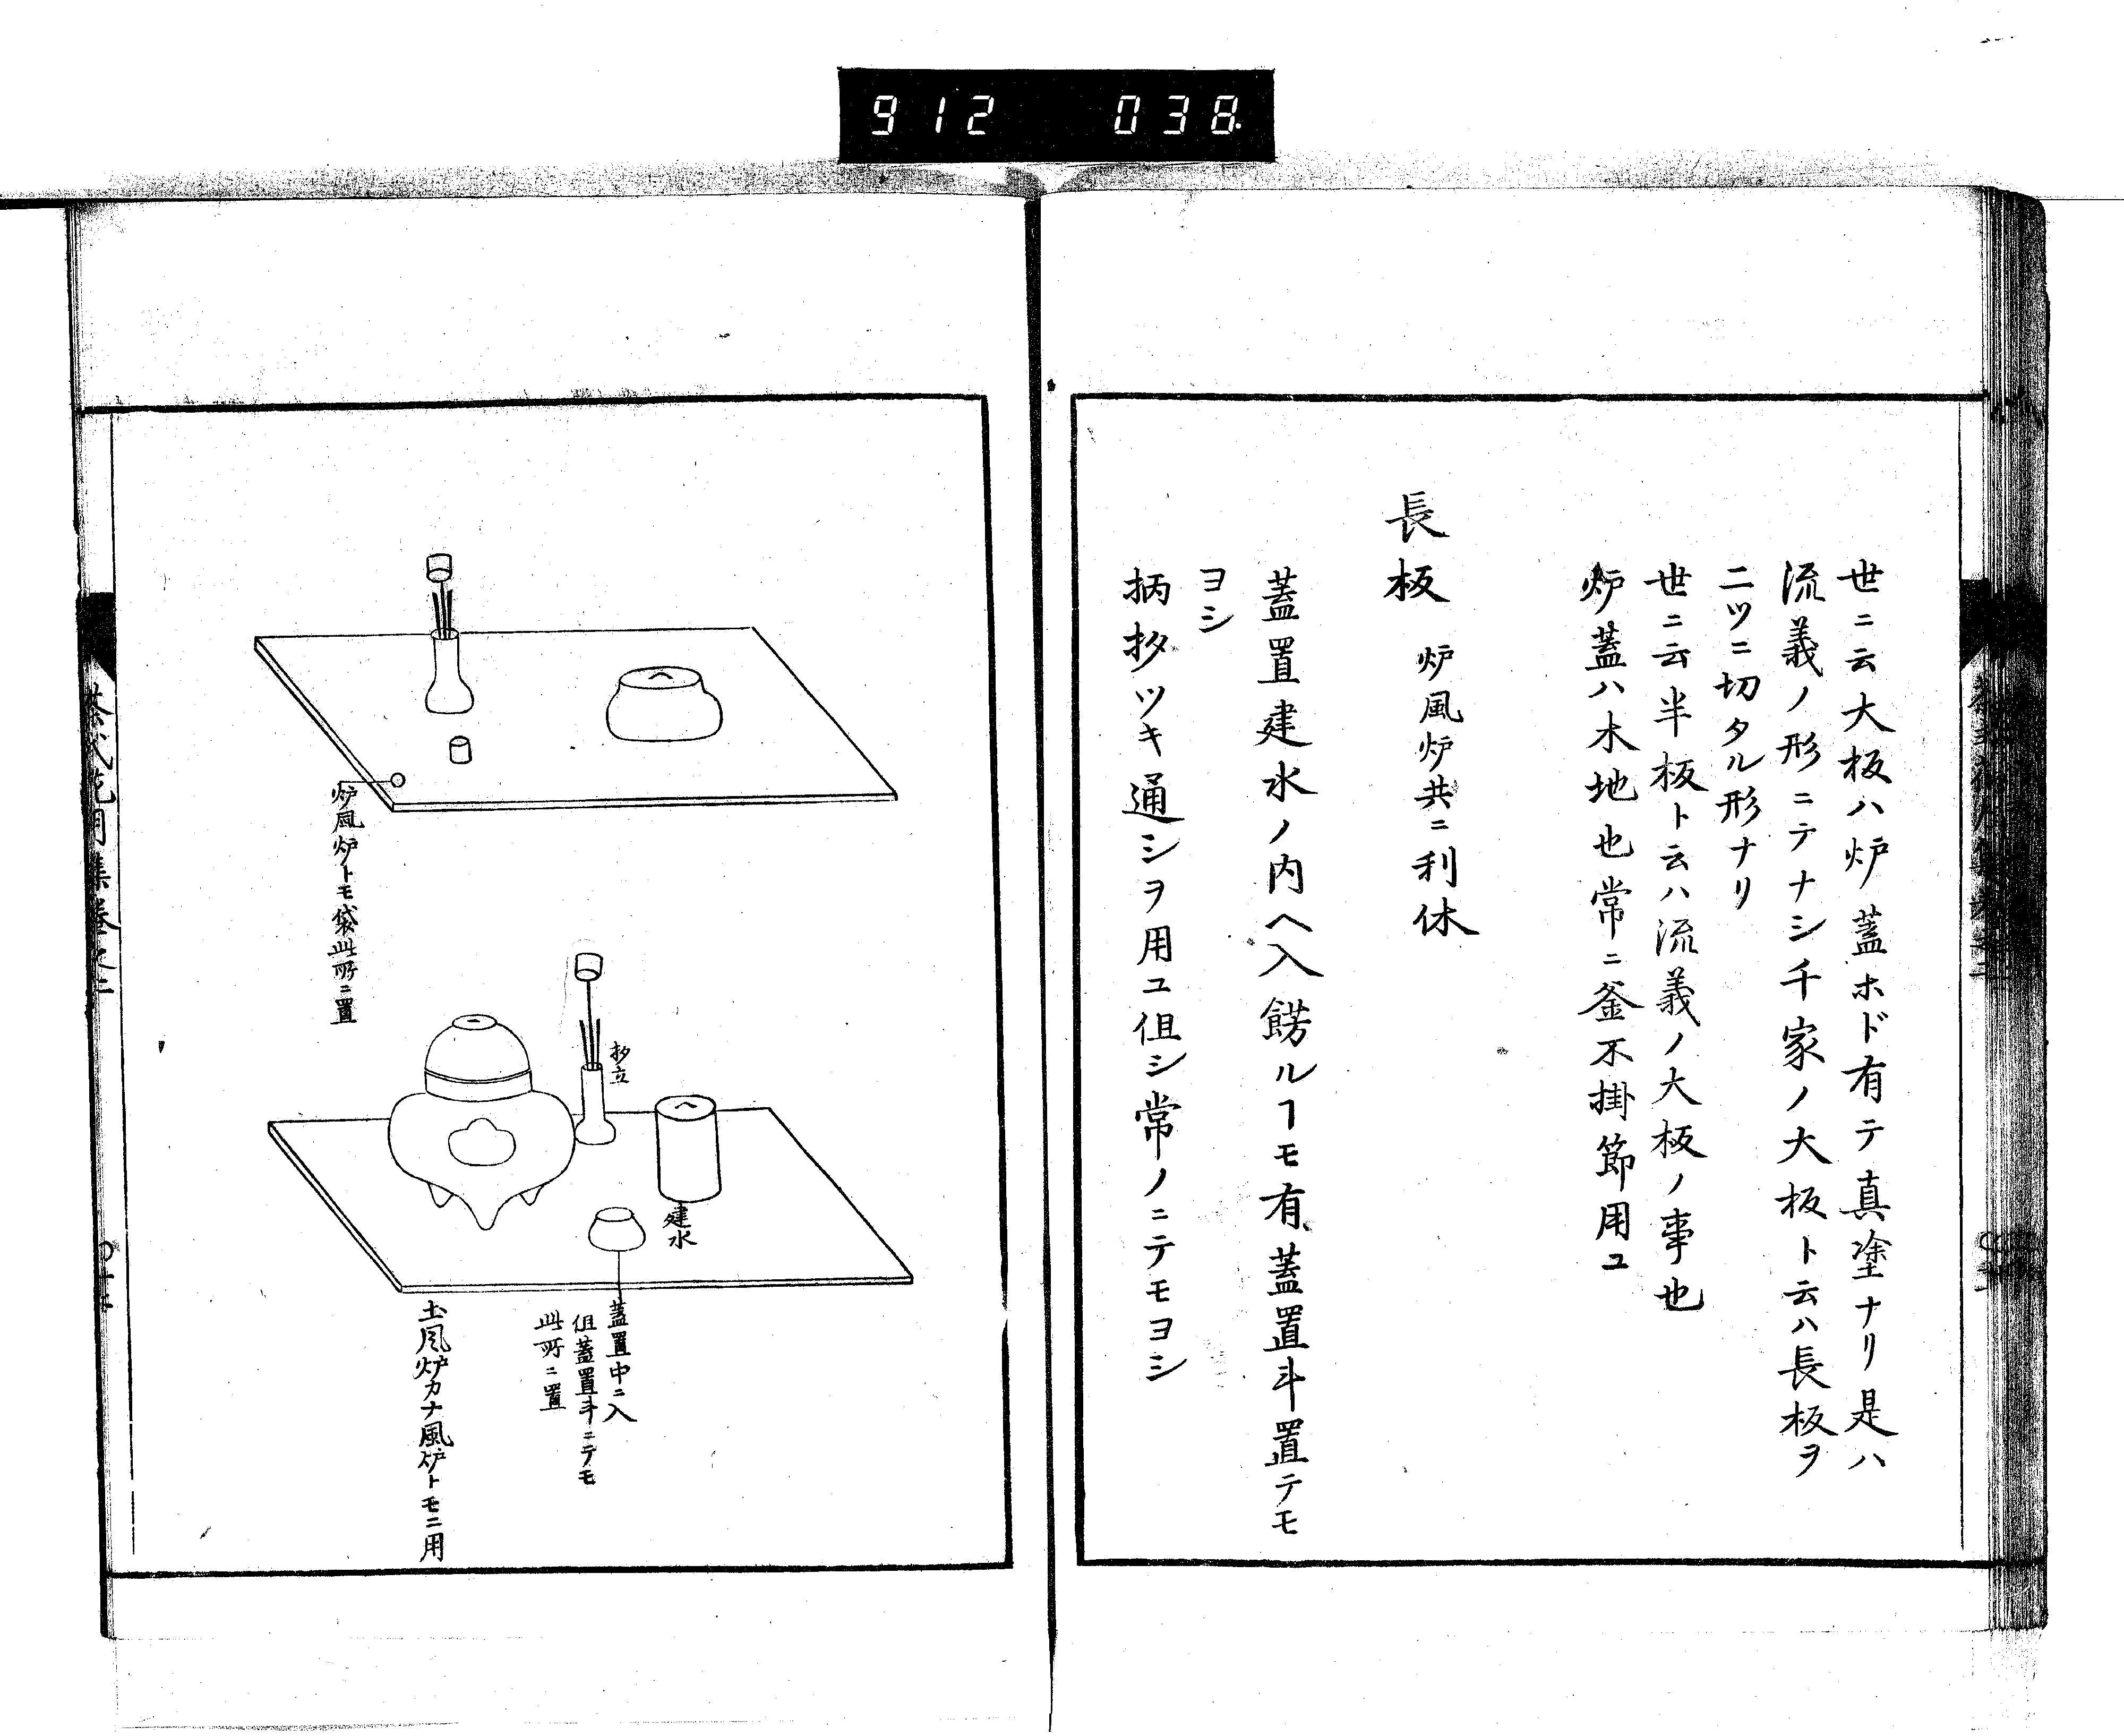 912 038
世ニ云大板ハ炉蓋ホド有テ真塗ナリ是ハ
流義ノ形ニテナシ千家ノ大板ト云ハ長板ヲ
二ツニ切タル形ナリ
世ニ云半板ト云ハ流義ノ大板ノ事也
炉蓋ハ木地也常ニ釜不掛節用ユ
長板 炉風炉共ニ利休
蓋置建水ノ内ヘ入餝ルヿモ有蓋置斗置テモ
ヨシ
柄杓ツキ通シヲ用ユ但シ常ノニテモヨシ
炉風炉トモ袋此所ニ置
杓立
建水
蓋置中ニ入
但蓋置斗ニテモ
此所ニ置
土風炉カナ風炉トモニ用